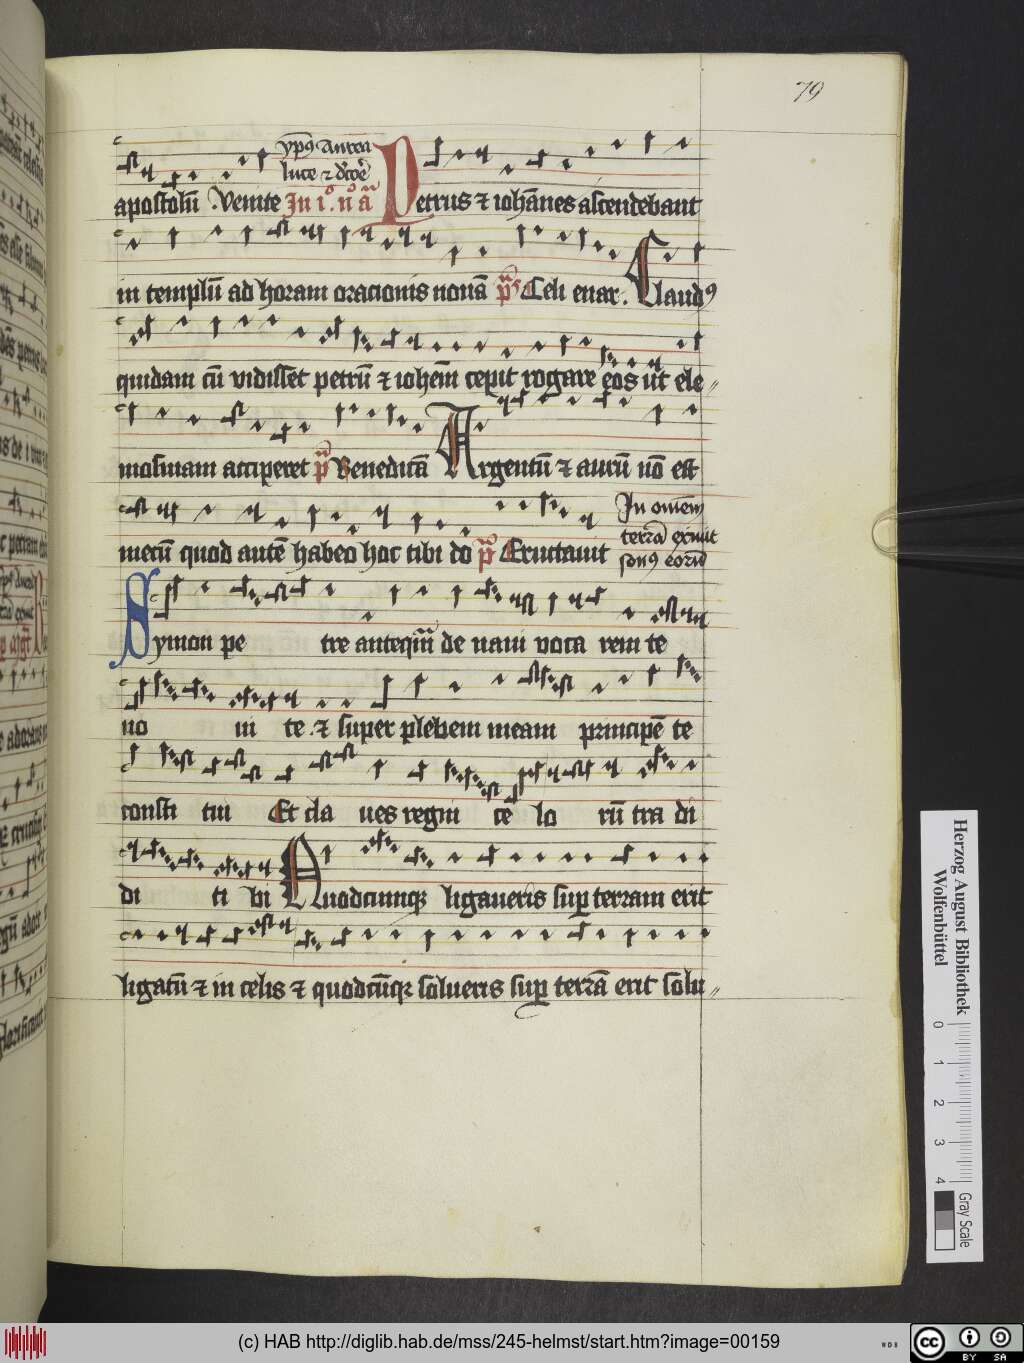 79
apostolū Venite In i° n° ā Petrus ⁊ iohānes ascendebant
in templū ad horam oracionis nonā p̄s Celi enar. Claudꝰ
quidam cū vidisset petrū ⁊ iohem̄ cepit rogare eos ut ele〃
mosinam acciperet p̄ Benedicā Argentū ⁊ aurū nō est
In omem̄
terrā exiuit
mecū quod autē habeo hoc tibi do p̄ Eructauit sonꝰ eorū
Symon pe tre anteqm̄ de naui voca rem te
no ui te ⁊ super plebem meam principē te
consti tui Et cla ues regni ce lo rū tra di
di ti bi Quodcunqꝫ ligaueris suꝑ terram erit
ligatū ⁊ in celis ⁊ quodcūqꝫ solueris suꝑ terrā erit solu〃
Herzog August Bibliothek
Wolfenbüttel
0 1 2 3 4
Gray Scale
(c) HAB http://diglib.hab.de/mss/245-helmst/start.htm?image=00159
WDB
cc BY SA